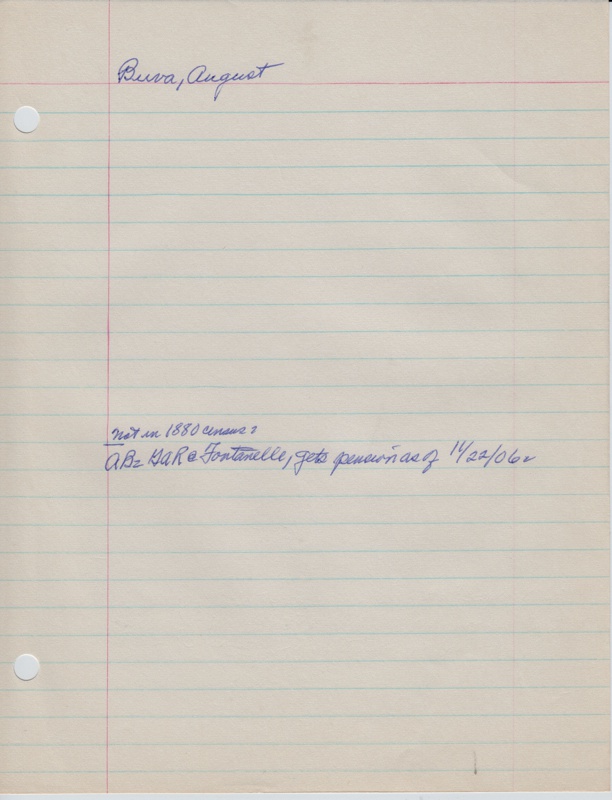 Buva, August
not in 1880 census:
AB= GAR @ Fontanelle, gets pension as of 11/22/06